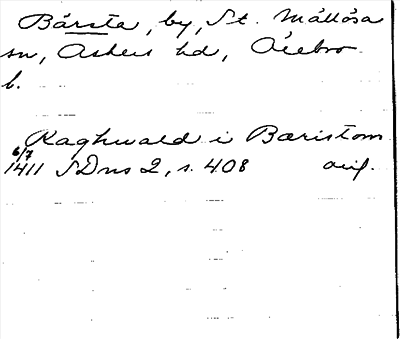 Bårsta, by, St. Mållösa
sn, Askers hd, Örebro
l.
Raghwald i Bæristom
6/7
1411 SDns 2, s. 408 orig.